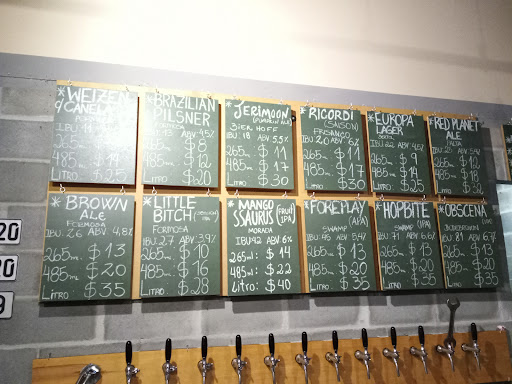 * WEIZEN
265ml $ 9
485ml $ 14
LITRO $ 25
* BRAZILIAN
PILSNER
ABV 4,5%
265ml $ 8
485ml $ 12
LITRO $ 20
* JERIMOON
(PUMPKIN ALE)
BIER HOFF
IBU 18 ABV 5,5%
265ml $ 11
485ml $ 17
LITRO $ 30
* RICORDI
(SAISON)
ABV 6%
265ml $ 11
485ml $ 17
LITRO $ 30
* EUROPA
LAGER
IBU 22
265ml $ 9
485ml $ 14
LITRO $ 25
* RED PLANET
ALE
265ml $ 12
485ml $ 18
LITRO $ 32
* BROWN
ALE
FORMOSA
IBU 26 ABV 4,8%
265ml $ 13
485ml $ 20
LITRO $ 35
* LITTLE
BITCH
FORMOSA
IBU 27 ABV 3,9%
265ml $ 10
485ml $ 16
LITRO $ 28
* MANGO (FRUIT
SSAURUS IPA)
MORADA
IBU 42 ABV 6%
265ml: $ 14
485ml: $ 22
LITRO: $ 40
* FOREPLAY
SWAMP (APA)
IBU 45 ABV 5,4%
265ml $ 13
485ml $ 20
LITRO $ 35
* HOPBITE
SWAMP (IPA)
IBU 71 ABV 6,6%
265ml $ 13
485ml $ 20
LITRO $ 35
* OBSCENA
IBU 81 ABV 6,7%
265ml $ 13
485ml $ 20
LITRO $ 35
20
20
9